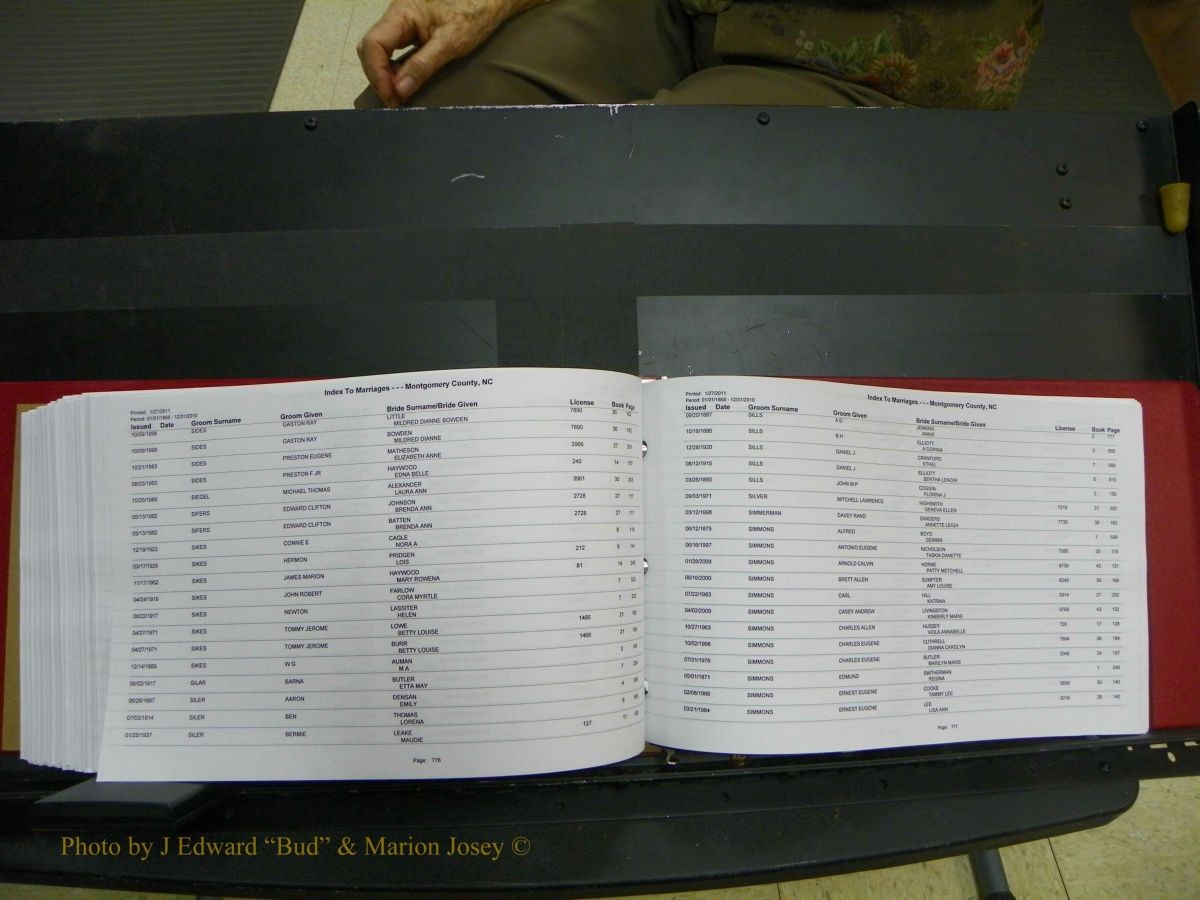 Index To Marriages - - - Montgomery County, NC
Printed: 1/27/2011
Period: 01/01/1868 - 12/31/2010
Issued Date Groom Surname Groom Given Bride Surname/Bride Given License Book Page
10/09/1998 SIDES GASTON RAY LITTLE 7890 36 162
MILDRED DIANNE BOWDEN
10/09/1998 SIDES GASTON RAY BOWDEN 7890 36 162
MILDRED DIANNE
10/21/1983 SIDES PRESTON EUGENE MATHESON 2966 27
ELIZABETH ANNE
08/03/1950 SIDES PRESTON F JR HAYWOOD 240 14
EDNA BELLE
10/25/1989 SIEGEL MICHAEL THOMAS ALEXANDER 3961 30
LAURA ANN
05/13/1982 SIFERS EDWARD CLIFTON JOHNSON 2728 27
BRENDA ANN
05/13/1982 SIFERS EDWARD CLIFTON BATTEN 2728 27
BRENDA ANN
12/19/1923 SIKES CONNIE E CAGLE 8
NORA A
03/17/1929 SIKES HERMON PRIDGEN 212 9
LOIS
11/17/1952 SIKES JAMES MARION HAYWOOD 81 14
MARY ROWENA
04/24/1919 SIKES JOHN ROBERT FARLOW 7
CORA MYRTLE
08/22/1917 SIKES NEWTON LASSITER 7
HELEN
04/27/1971 SIKES TOMMY JEROME LOWE 1466 21
BETTY LOUISE
04/27/1971 SIKES TOMMY JEROME BURR 1466 21
BETTY LOUISE
12/14/1889 SIKES W G AUMAN 3
M A
08/02/1917 SILAR BARNA BUTLER 7
ETTA MAY
06/26/1897 SILER AARON DENSAN 4
EMILY
07/03/1914 SILER BEN THOMAS 6
LORENA
01/25/1937 SILER BERMIE LEAKE 127 11
MAUDIE
Page: 776
Index To Marriages - - - Montgomery County, NC
Printed: 1/27/2011
Period: 01/01/1868 - 12/31/2010
Issued Date Groom Surname Groom Given Bride Surname/Bride Given License Book Page
09/20/1887 SILLS A D JENKINS 2 771
ANNIE
10/16/1886 SILLS B H ELLIOTT 2
A CORINA
12/28/1920 SILLS DANIEL J CRANFORD 7
ETHEL
08/12/1915 SILLS DANIEL J ELLIOTT 6
BERTHA LENOIR
03/26/1880 SILLS JOHN W P COGGIN 2 150
FLORINA J
09/03/1971 SILVER MITCHELL LAWRENCE HIGHSMITH 1516 21 200
GENEVA ELLEN
03/12/1998 SIMMERMAN DAVEY RAND SANDERS 7739 36 163
ANNETTE LEIGH
06/12/1875 SIMMONS ALFRED BOYD 1 596
GEMMA
06/16/1997 SIMMONS ANTONIO EUGENE NICHOLSON 7560 35 179
TASKIA DANETTE
01/28/2009 SIMMONS ARNOLD CALVIN HORNE 9739 43 131
PATTY METCHELL
06/16/2000 SIMMONS BRETT ALLEN SUMPTER 8249 38 168
AMY LOUISE
07/22/1983 SIMMONS CARL HILL 2914 27 292
KATRINA
04/02/2009 SIMMONS CASEY ANDREW LIVINGSTON 9768 43 132
KIMBERLY MARIE
10/27/1963 SIMMONS CHARLES ALLEN HUSSEY 726 17 128
VIOLA ANNABELLE
10/02/1998 SIMMONS CHARLES EUGENE CUTHRELL 7884 36 184
DIANNA CAROLYN
07/31/1976 SIMMONS CHARLES EUGENE BUTLER 2046 24 107
MARILYN MARIE
05/01/1871 SIMMONS EDMUND SMITHERMAN 1 249
REGINA
02/08/1988 SIMMONS ERNEST EUGENE COOKE 3658 30 140
TAMMY LEE
03/21/1984 SIMMONS ERNEST EUGENE LEE 3018 28 140
LISA ANN
Page: 777
Photo by J Edward “Bud” & Marion Josey ©